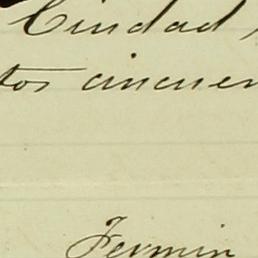 Ciudad
tos cincuen
Fermin